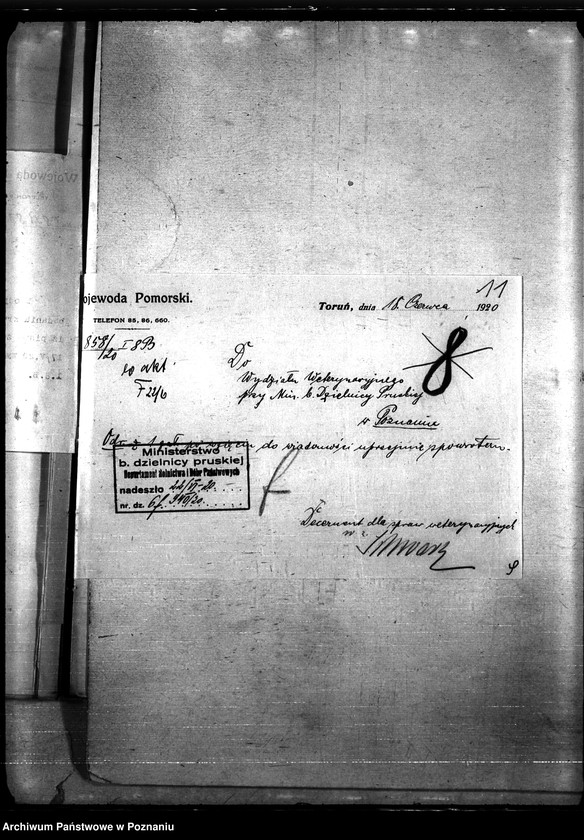 11
ojewoda Pomorski.
Toruń, dnia 18. Czerwca 1920
TELEFON 85, 86, 660.
858/20 I 8B
ad akt
22/6
8
Do
Wydziału Weterynaryjnego
przy Min. b. Dzielnicy Pruskiej
w Poznaniu
do wiadomości uprzejmie zpowrotem.
Ministerstwo
b. dzielnicy pruskiej
Departament Rolnictwa i Dóbr Państwowych
nadeszło 22/VI-20.
nr. dz.
Decernent dla spraw weterynaryjnych
Archiwum Państwowe w Poznaniu